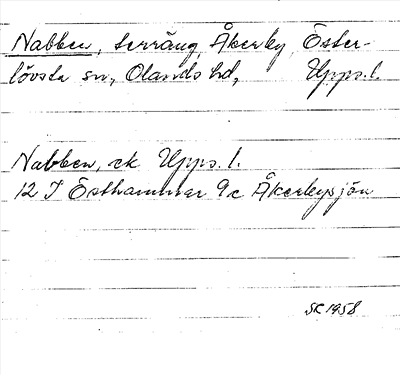 Nabben, terräng Åkerby Öster-
lövsta sn, Olands hd, Upps. l.
Nabben, ek Upps. l.
12 I Östhammar 9 c Åkerbysjön
SK 1958